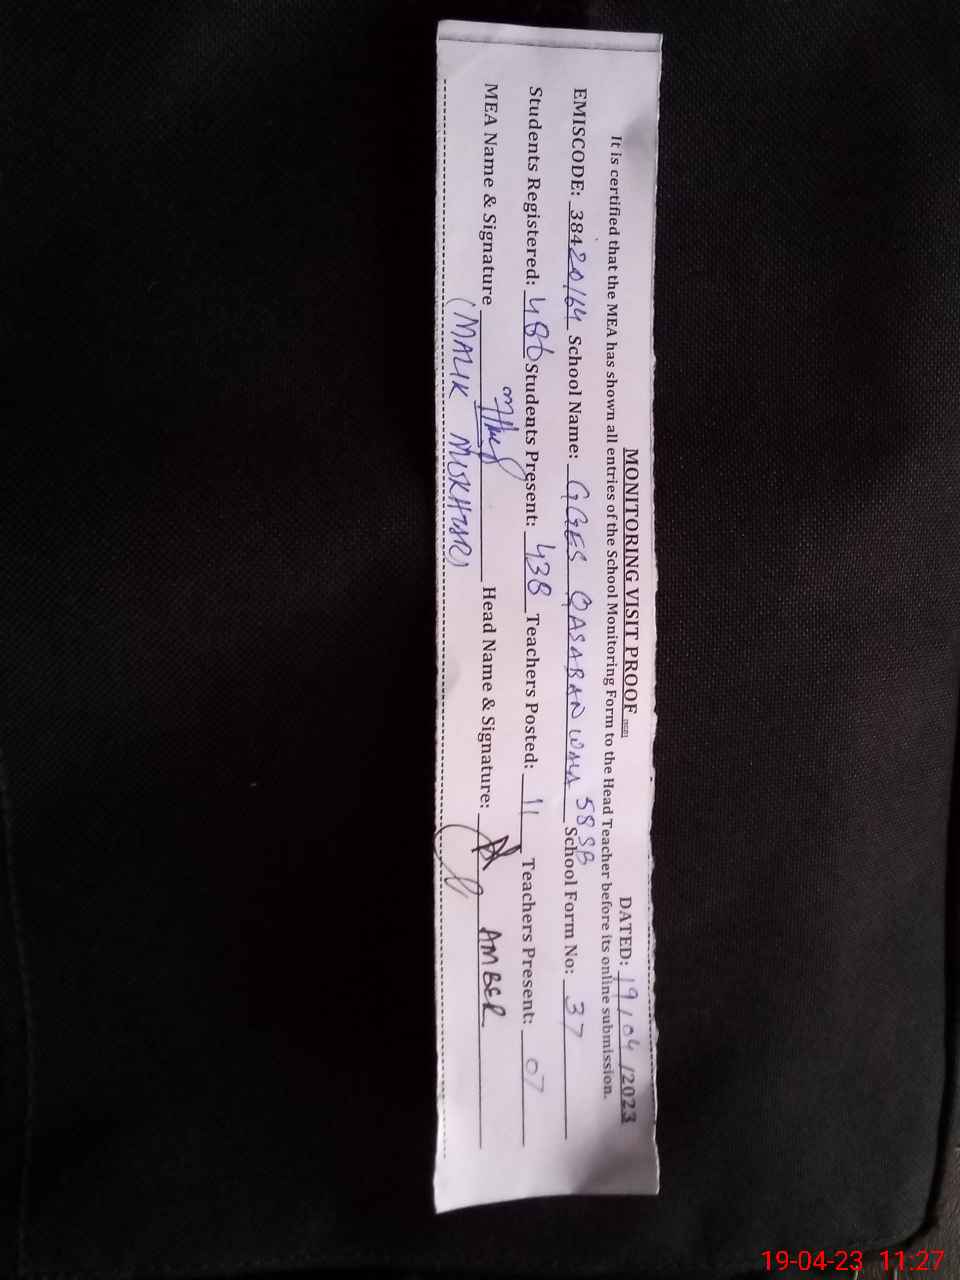 MONITORING VISIT PROOF
DATED: 19/04/2023
It is certified that the MEA has shown all entries of the School Monitoring Form to the Head Teacher before its online submission.
EMISCODE: 38420164 School Name: GGES QASABAN WALA 58SB School Form No: 37
Students Registered: 486 Students Present: 438 Teachers Posted: 11 Teachers Present: 07
MEA Name & Signature Head Name & Signature: AMBER
(MALIK MUKHTAR)
19-04-23 11:27